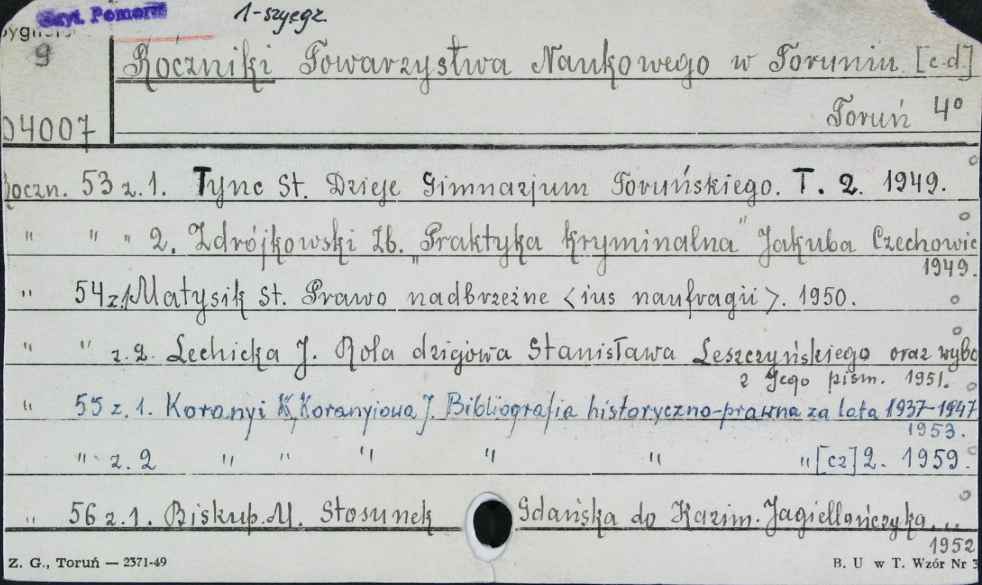 Czyt. Pomorze
1-szy egz.
Sygn
9
04007
Roczniki Towarzystwa Naukowego w Toruniu [c.d.]
Toruń 4°
Roczn. 53 z. 1. Tync St. Dzieje Gimnazjum Toruńskiego. T. 2. 1949.
" " " 2. Zdrójkowski Zb. "Praktyka kryminalna" Jakuba Czechowic
1949.
" 54 z.1 Matysik St. Prawo nadbrzeżne <ius naufragii>. 1950.
" " z. 2. Lechicka J. Rola dziejowa Stanisława Leszczyńskiego oraz wybó
z Jego pism. 1951.
" 55 z. 1. Koranyi K, Koranyiowa J. Bibliografia historyczno-prawna za lata 1937-1947
1953.
" z. 2 " " " " " " [cz] 2. 1959.
" 56 z. 1. Biskup. M. Stosunek Gdańska do Kazim. Jagiellończyka...
1952
Z. G., Toruń — 2371-49
B. U w T. Wzór Nr 3